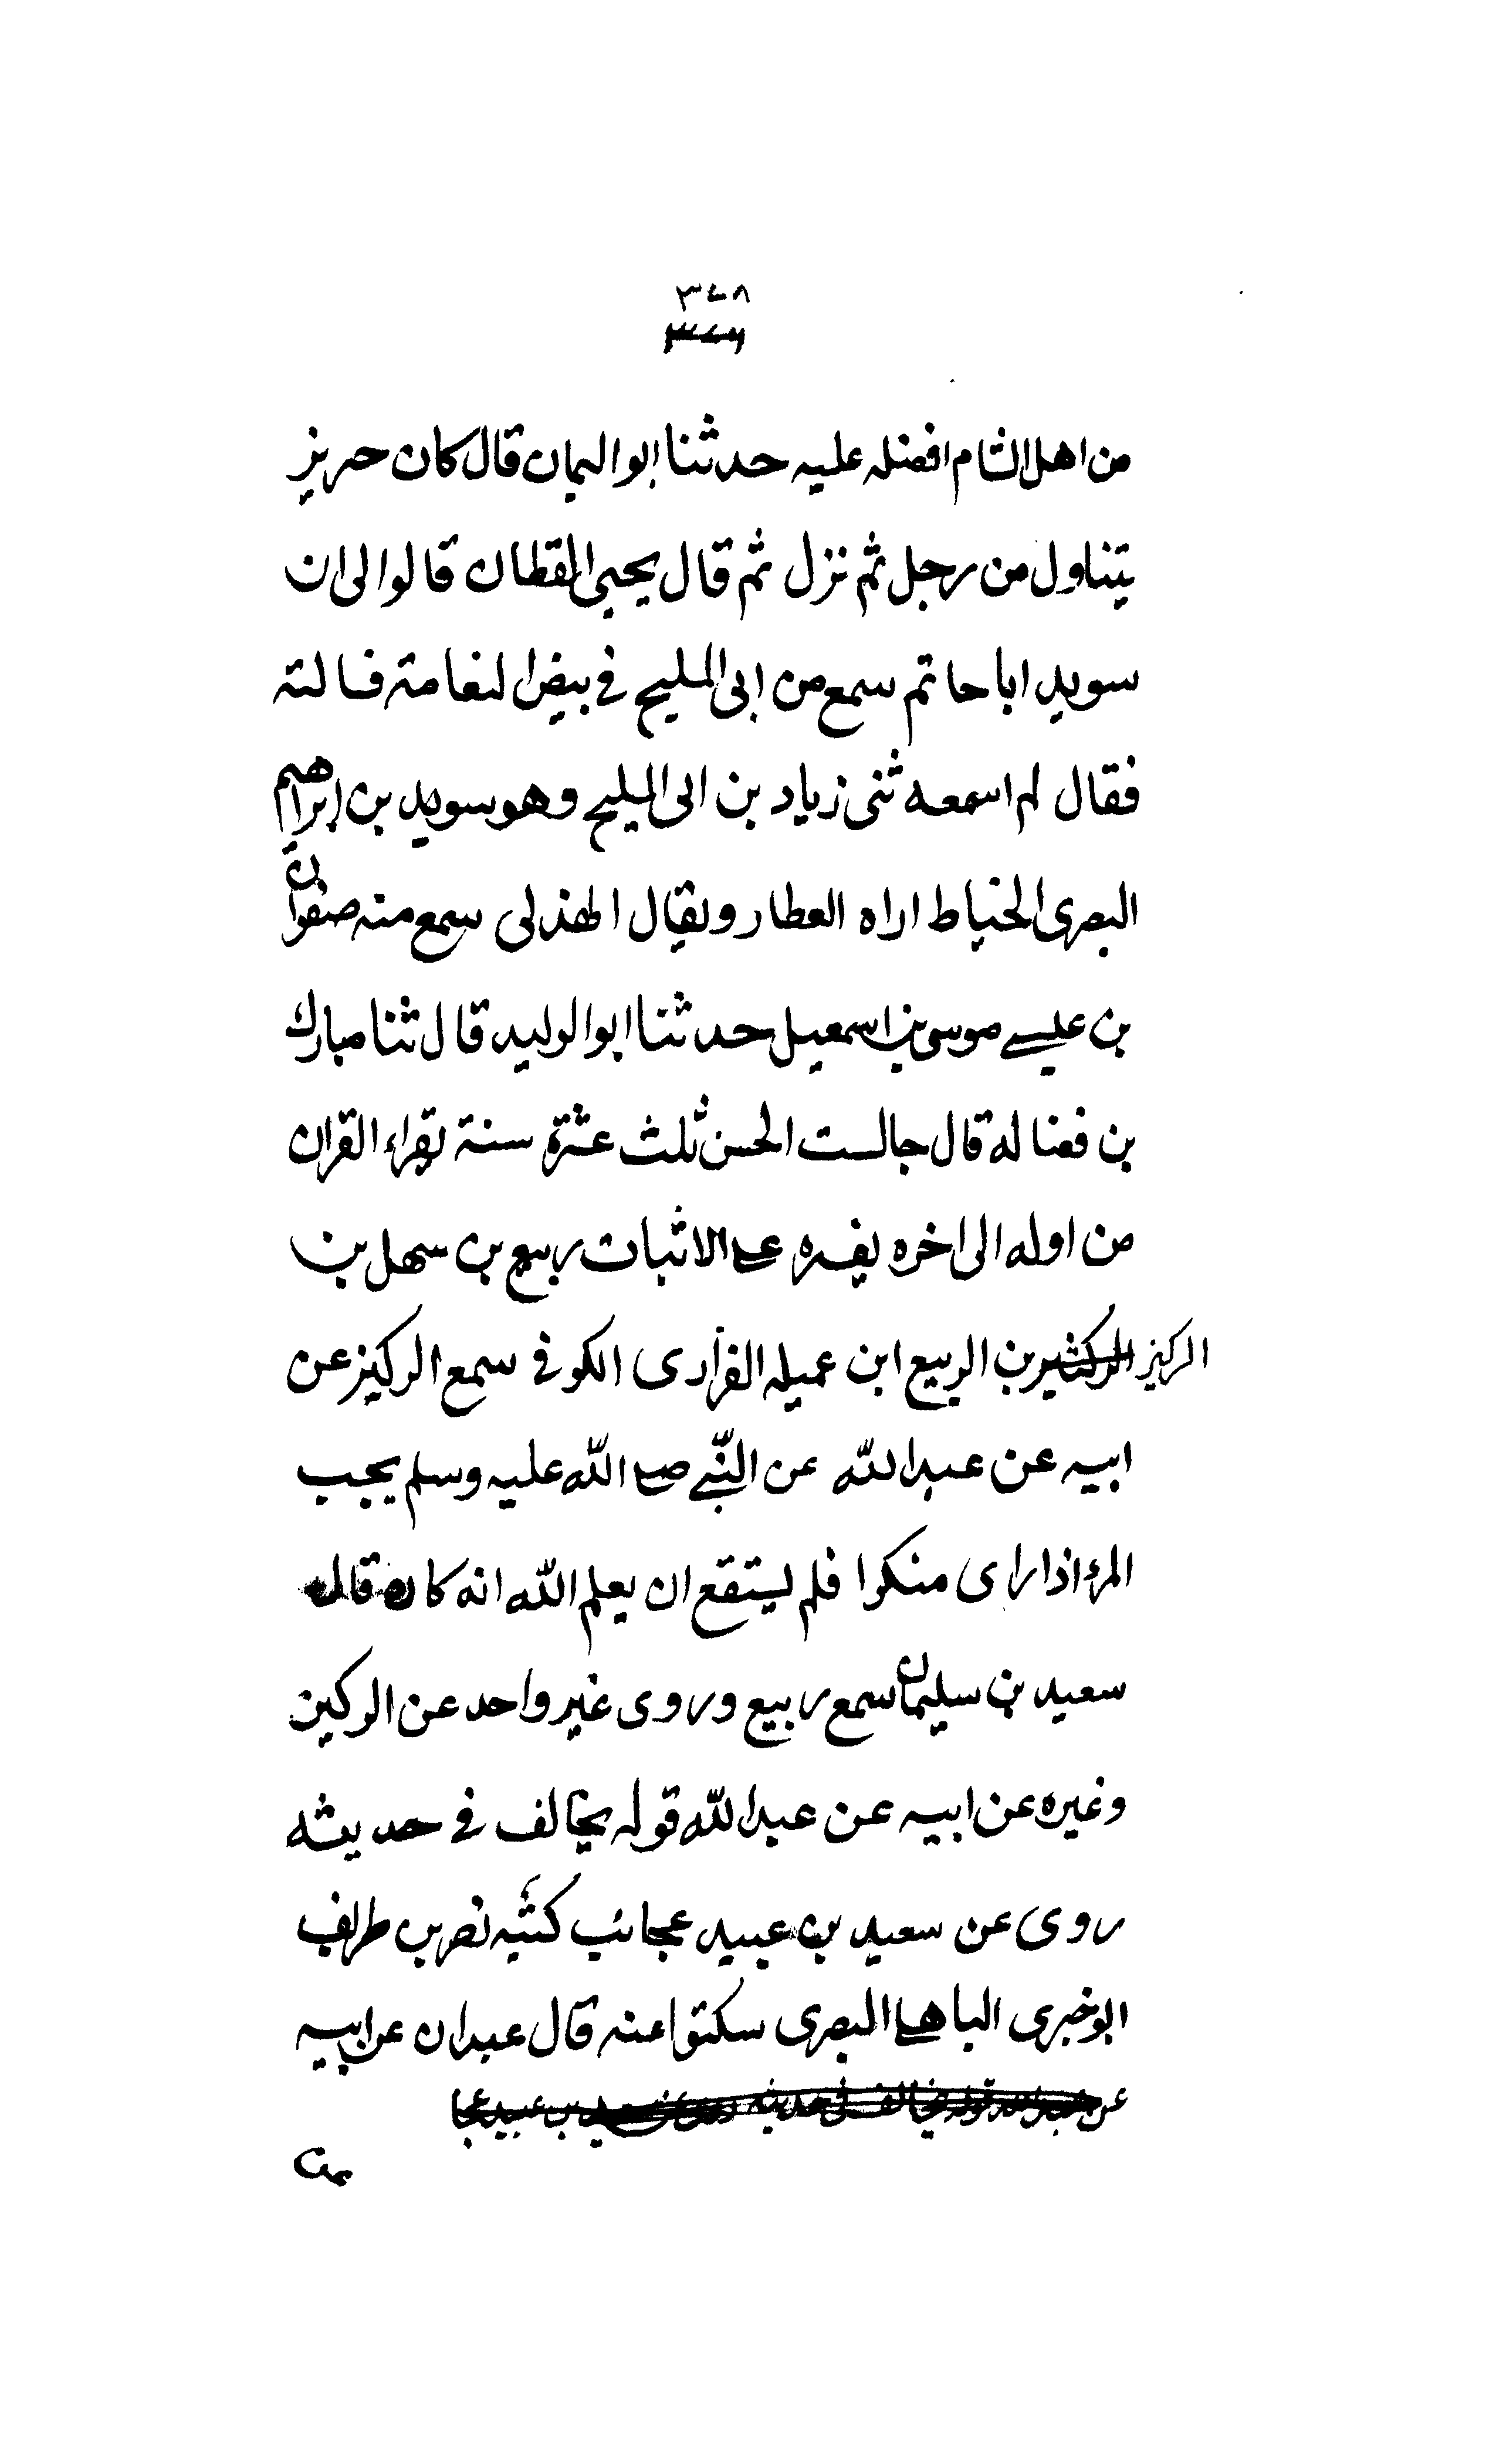 ٣٤٨
٣٤٧
من اهل الشام افضله عليه حدثنا ابو اليمان قال كان حريز
يتناول من رجل ثم نزل ثم قال يحيى القطان قالوا لى ان
سويد ابا حاتم سمع من ابى المليح فى بيض النغامة فسالته
فقال لم اسمعه ثنى زياد بن ابى المليح وهو سويد بن ابراهيم
البصرى الخياط اراه العطار ويقال الهذلى سمع منه صفوان
بن عيسے موسى بن اسمعيل حدثنا ابو الوليد قال ثنا مبارك
بن فضاله قال جالست الحسن ثلث عشرة سنة يقراء القران
من اوله الى اخره يفسره على الاثبات ربيع بن سهل بن
الركيز الركثير بن الربيع ابن عميله الفزاردى الكوفى سمع الركيز عن
ابيه عن عبد الله عن النّبے صلے الله عليه وسلم يحب
المرء اذا راى منكرا فلم يستقع ان يعلم الله انه كاره قال
سعيد بن سليمان سمع ربيع وروى غير واحد عن الركين
وغيره عن ابيه عن عبد الله قوله يخالف فى حديثه
روى عن سعيد بن عبيد عجائب كتبه نصر بن طريف
ابو خبرى الباهلے البصرى سكتوا عنه قال عبدان عن ابيه
عن عبد الله قوله يخالف فى حديثه روى عن سعيد بن عبيد عجا